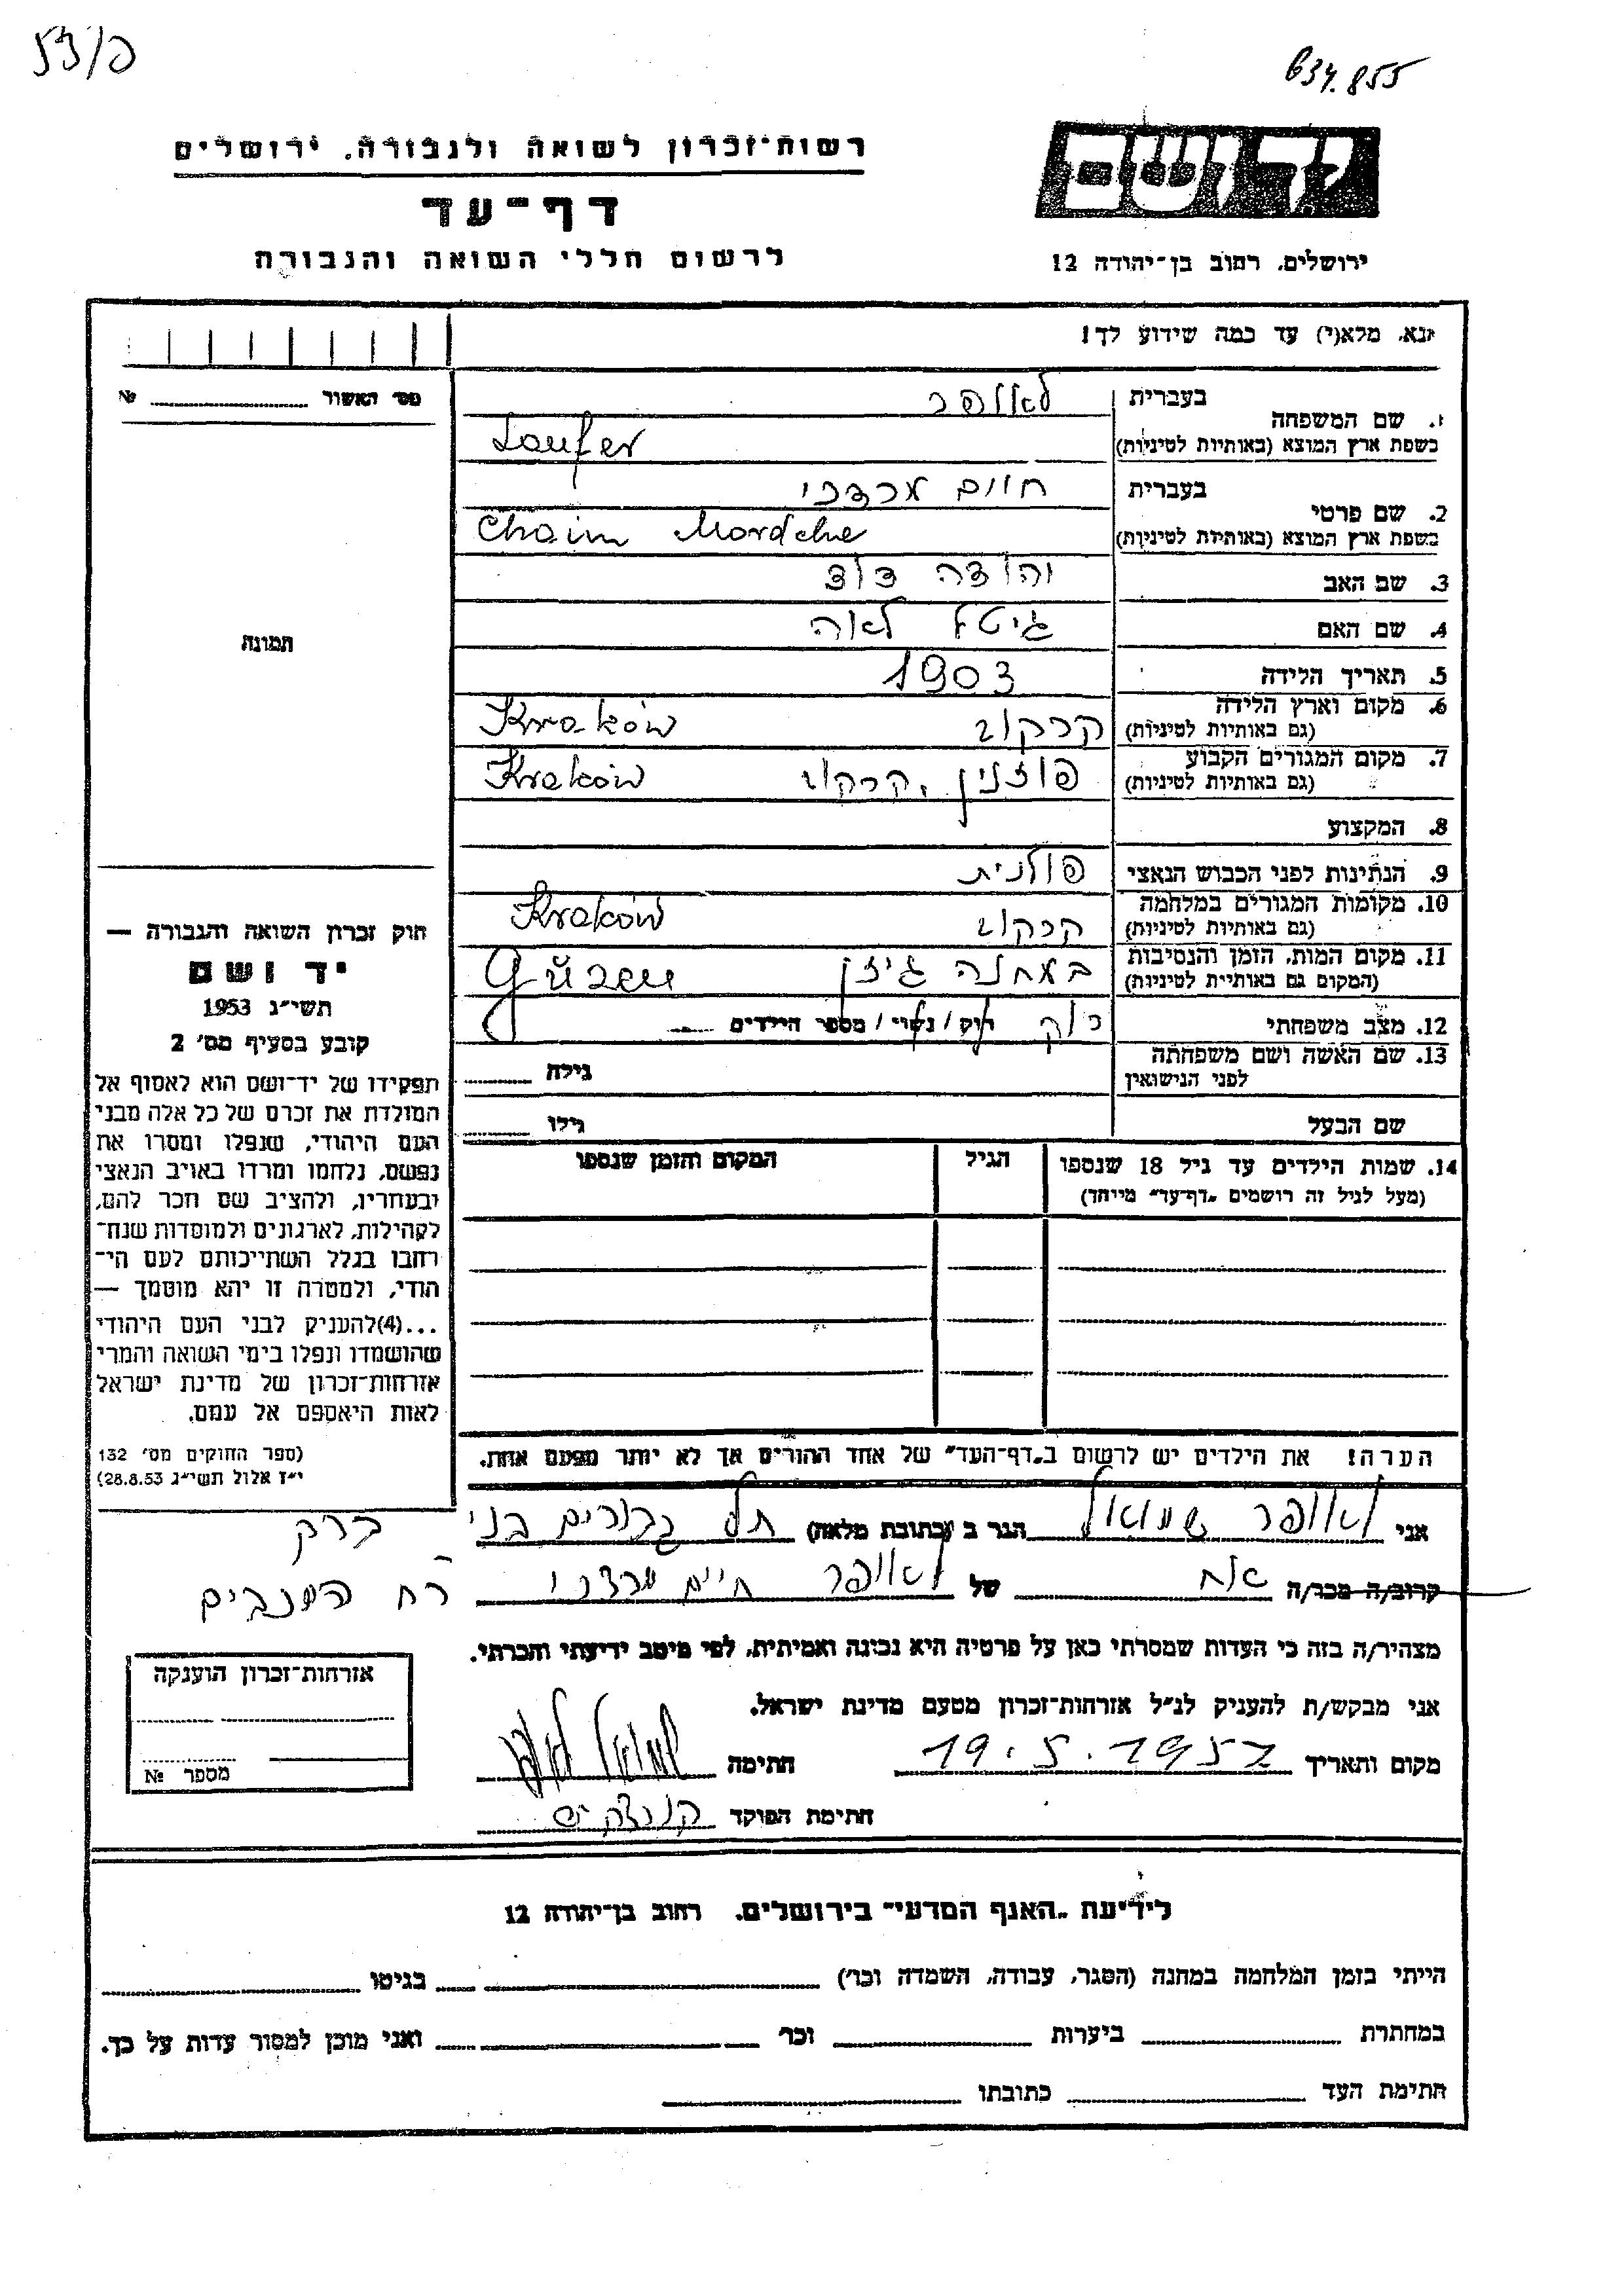 53/פ
634.855
יד ושם
ירושלים, רחוב בן־יהודה 12
רשות־זכרון לשואה ולגבורה, ירושלים
דף־עד
לרשום חללי השואה והגבורה
נא, מלא(י) עד כמה שידוע לך!
מס׳ האשור № 
1. שם המשפחה
בעברית לאופר
בשפת ארץ המוצא (באותיות לטיניות) Laufer
2. שם פרטי
בעברית חיים מרדכי
בשפת ארץ המוצא (באותיות לטיניות) Chaim Mordche
3. שם האב יהודה דוד
4. שם האם גיטל לאה
5. תאריך הלידה 1903
6. מקום וארץ הלידה
(גם באותיות לטיניות) קרקוב Kraków
7. מקום המגורים הקבוע
(גם באותיות לטיניות) פוזנין, קרקוב Kraków
8. המקצוע
9. הנתינות לפני הכבוש הנאצי פולנית
10. מקומות המגורים במלחמה
(גם באותיות לטיניות) קרקוב Kraków
11. מקום המות, הזמן והנסיבות
(המקום גם באותיות לטיניות) במחנה גיזן Güzen
12. מצב משפחתי רוק רוק / נשוי / מספר הילדים
13. שם האשה ושם משפחתה
לפני הנישואין גילה
שם הבעל גילו
14. שמות הילדים עד גיל 18 שנספו הגיל המקום והזמן שנספו
(מעל לגיל זה רושמים "דף־עד" מיוחד)
תמונה
חוק זכרון השואה והגבורה —
יד ושם
תשי״ג 1953
קובע בסעיף מס׳ 2
תפקידו של יד־ושם הוא לאסוף אל
המולדת את זכרם של כל אלה מבני
העם היהודי, שנפלו ומסרו את
נפשם, נלחמו ומרדו באויב הנאצי
ובעוזריו, ולהציב שם וזכר להם,
לקהילות, לארגונים ולמוסדות שנח־
רחבו בגלל השתייכותם לעם הי־
הודי, ולמטרה זו יהא מוסמך —
...(4)להעניק לבני העם היהודי
שהושמדו ונפלו בימי השואה והמרי
אזרחות־זכרון של מדינת ישראל
לאות היאספם אל עמם.
(ספר החוקים מס׳ 132
י״ז אלול תשי״ג 28.8.53)
הערה! את הילדים יש לרשום ב"דף־העד" של אחד ההורים אך לא יותר מפעם אחת.
אני לאופר שמואל הגר ב (כתובת מלאה) תל גבורים בני ברק
רח
קרוב/ה מכר/ה אח של לאופר חיים מרדכי
מצהיר/ה בזה כי העדות שמסרתי כאן על פרטיה היא נכונה ואמיתית, לפי מיטב ידיעתי והכרתי.
אני מבקש/ת להעניק לנ״ל אזרחות־זכרון מטעם מדינת ישראל.
מקום ותאריך 19.5.1957 חתימה שמואל לאופר
חתימת הפוקד
אזרחות־זכרון הוענקה
מספר №
לידיעת "האגף המדעי" בירושלים, רחוב בן־יהודה 12
הייתי בזמן המלחמה במחנה (הסגר, עבודה, השמדה וכו׳) בגיטו
במחתרת ביערות וכו׳ ואני מוכן למסור עדות על כך.
חתימת העד כתובתו